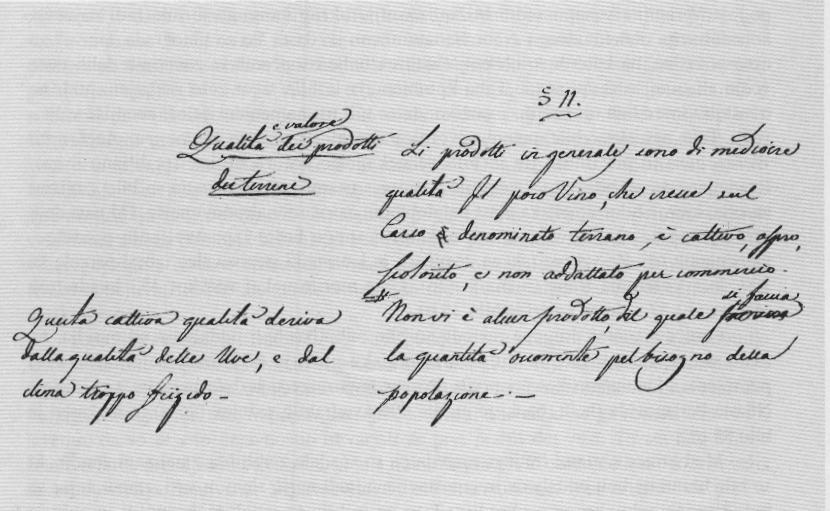 § 11.
e valore
Qualità dei prodotti
dei terreni
Li prodotti in generale sono di mediocre
qualità Il poco Vino, che cresce sul
Carso è denominato terrano, è cattivo, aspro,
scolorito, e non addattato per commercio.
di faccia
Non vi è alcun prodotto, del quale
la quantità occorrente pel bisogno della
popolazione. —
Questa cattiva qualità deriva
dalla qualità delle Uve, e dal
clima troppo frigido —